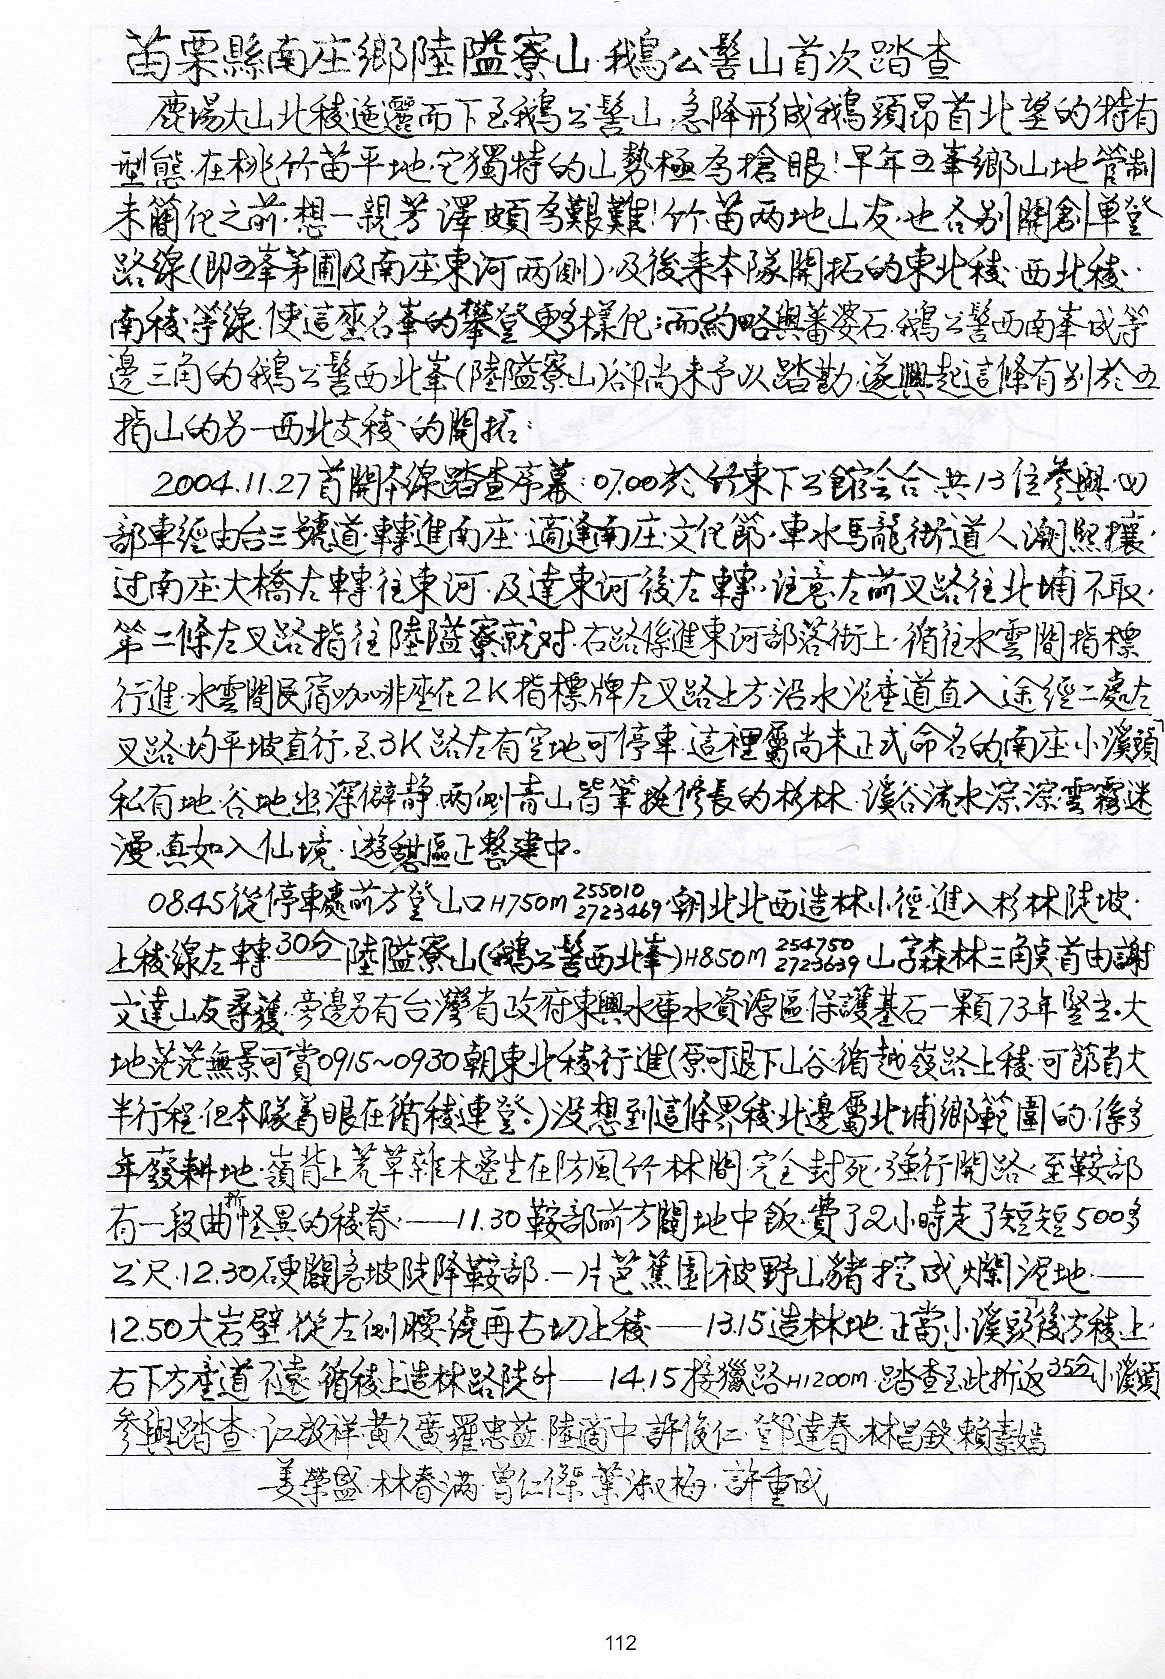 苗栗縣南庄鄉陸隘寮山·鵝公髻山首次踏查
鹿場大山北稜迤邐而下至鵝公髻山,急降形成鵝頭昂首北望的特有
型態·在桃竹苗平地·它獨特的山勢極為搶眼!早年五峯鄉山地管制
未簡化之前·想一親芳澤頗為艱難!竹·苗兩地山友·也各別開創單登
路線(即五峯茅圃及南庄東河兩側)·及後來本隊開拓的東北稜·西北稜·
南稜·等線·使這座名峯的攀登更多樣化;而約略與蕃婆石·鵝公髻西南峯成等
邊三角的鵝公髻西北峯(陸隘寮山)卻尚未予以踏勘·遂興起這條有別於五
指山的另一西北支稜·的開拓:
2004.11.27首開本線踏查序幕:07.00於竹東下公館会合共13位參與·四
部車經由台三號道·轉進南庄·適逢南庄·文化節·車水馬龍街道人潮熙攘·
过南庄大橋左轉往東河·及達東河後左轉·注意左前叉路往北埔不取·
第二條左叉路指往陸隘寮就对·右路係進東河部落街上·循往水雲間指標
行進·水雲間民宿咖啡座在2K指標牌左叉路上方·沿水泥產道直入途經二處左
叉路·均平坡直行·至3K路左有空地可停車·這裡屬尚未正式命名的南庄「小溪頭」
私有地·谷地幽深僻静·兩側青山皆筆挺修長的杉林·溪谷流水淙淙·雲霧迷
漫·真如入仙境·遊憩區正整建中。
08.45從停車處前方登山口H750m 255010 2723469·朝北北西造林小徑·進入杉林陡坡·
上稜線左轉30分 陸隘寮山(鵝公髻西北峯)H850m 254750 2723639 山字森林三角點首由謝
文達山友尋獲·旁邊另有台灣省政府東興水庫水資源區保護基石一顆73年豎立·大
地茫茫無景可賞0915~0930朝東北稜行進(原可退下山谷·循越嶺路上稜·可節省大
半行程·但本隊着眼在循稜連登。)没想到這條界稜北邊屬北埔鄉範圍的·係多
年廢耕地·嶺背上荒草雜木密生在防風竹林間·完全封死·強行開路·至鞍部
有一段曲折怪異的稜脊·——11.30鞍部前方闢地中飯·費了2小時走了短短500多
公尺·12.30硬闢急坡陡降鞍部·一片芭蕉園被野山豬挖成爛泥地·——
12.50大岩壁·從左側腰繞再右切上稜——13.15造林地·正當「小溪頭」後方稜上·
右下方產道不遠·循稜上造林路陡升——14.15接獵路H1200m·踏查至此折返35分小溪頭
參與踏查·江放祥·黄久廣·羅忠益·陸適中·許俊仁·鄧達春·林昌欽·賴素嫣
姜榮盛·林春滿·曾仁傑·葉淑梅·許重成
112